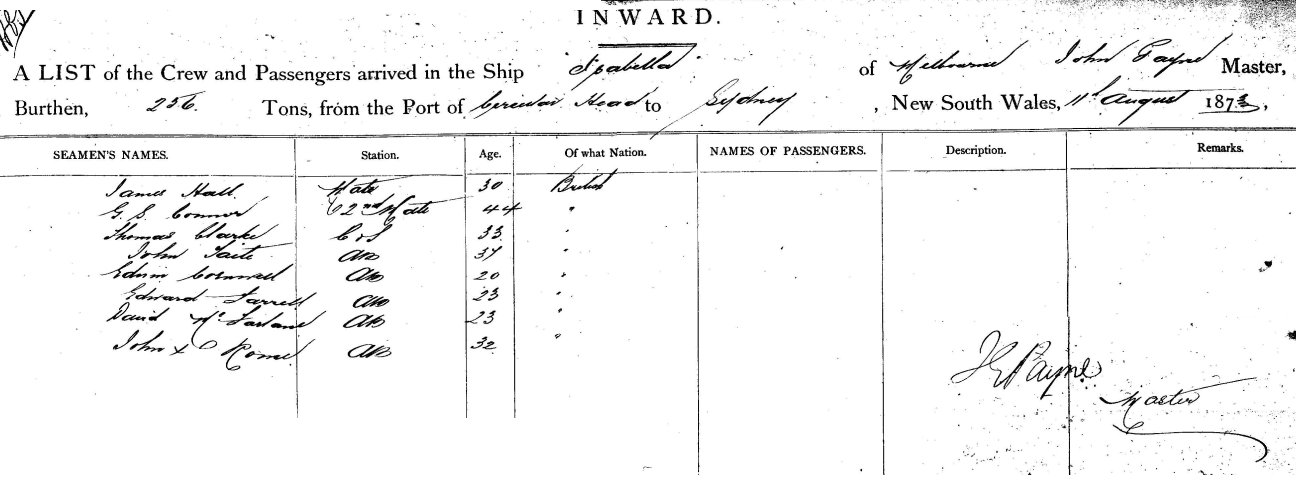 INWARD.
A LIST of the Crew and Passengers arrived in the Ship Isabella of Melbourne John Payne Master,
Burthen, 256 Tons, from the Port of Circular Head to Sydney, New South Wales, 11th August 1873,
SEAMEN'S NAMES. Station. Age. Of what Nation. NAMES OF PASSENGERS. Description. Remarks.
James Hall Mate 30 British
G. S. Connor 2nd Mate 44 "
Thomas Clarke C & S 33 "
John Taite AB 37 "
Edwin Cornwell AB 20 "
Edward Farrell AB 23 "
David McFarland AB 23 "
John AB 32 "
Payne
Master